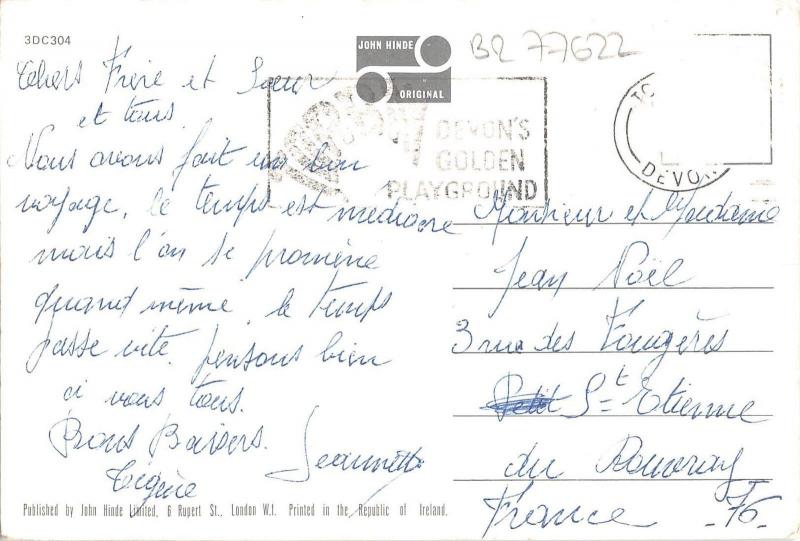 3DC304
JOHN HINDE
ORIGINAL
B2 77622
DEVON'S
GOLDEN
PLAYGROUND
TO
DEVON
Chers Frère et Sœur
et tous
Nous avons fait un bon
voyage, le temps est médiocre
mais l'on se promène
quand même, le temps
passe vite. pensons bien
à vous tous.
Bons Baisers.
Jeannette
Monsieur et Madame
Jean Noël
3 rue des Fougères
Petit St Etienne
du Rouvray
France -76-
Published by John Hinde Limited, 6 Rupert St., London W.1. Printed in the Republic of Ireland.